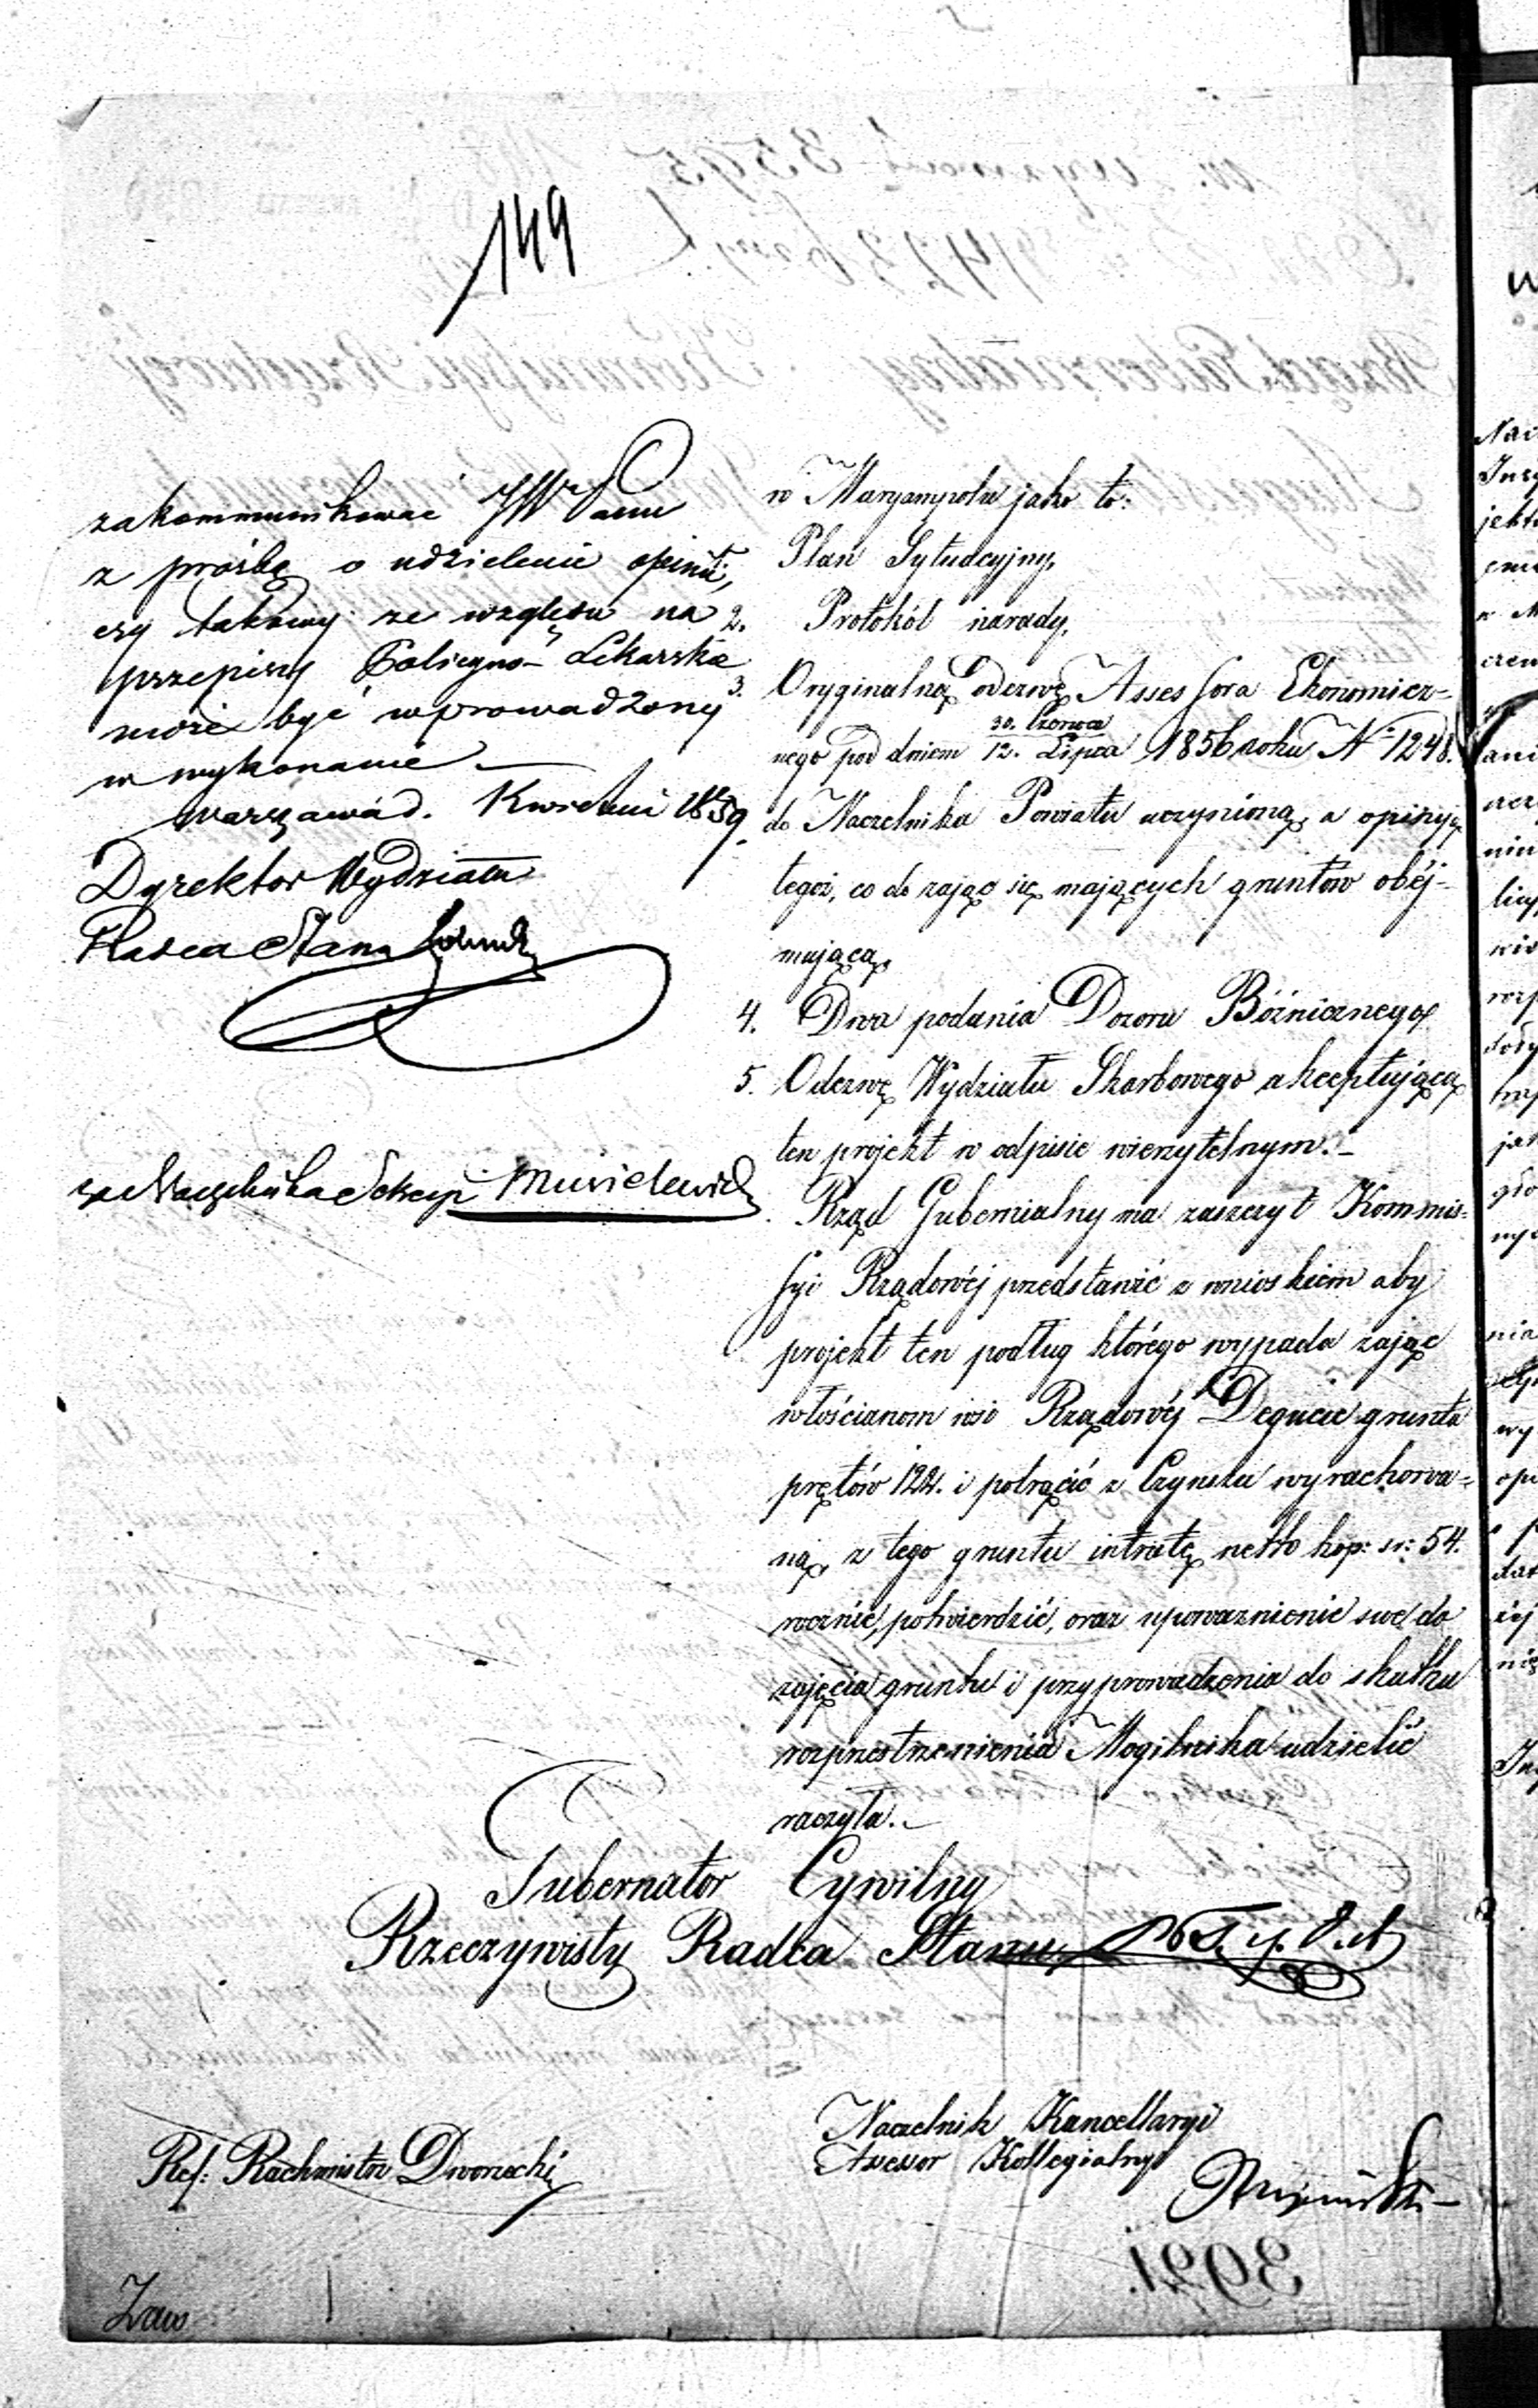 149
zakommunikować JW Panu
z prośbą o udzielenie opinii,
czy takowy ze względu na
przepisy Policyjno-Lekarskie
może być wprowadzony
w wykonanie. —
Warszawa d. Kwietnia 1859.
Dyrektor Wydziału
Radca Stanu
za Naczelnika Sekcyi
w Maryampolu jako to:
Plan Sytuacyjny,
2. Protokół narady,
3. Oryginalną odezwę Assessora Ekonomicz-
nego pod dniem 30. Czerwca / 12. Lipca 1856 roku Nº 1248.
do Naczelnika Powiatu uczynioną, a opinyą
tegoż, co do zająć się mających gruntów obej-
mującą,
4. Dwa podania Dozoru Bóźnicznego,
5. Odezwę Wydziału Skarbowego akceptującą
ten projekt w odpisie wierzytelnym. —
Rząd Gubernialny ma zaszczyt Kommis-
syi Rządowéj przedstawić z wnioskiem aby
projekt ten podług którego wypada zająć
włościanom wsi Rządowéj Degucie gruntu
prętów 122. i potrącić z Czynszu wyrachowa-
ną, z tego gruntu intratę netto kop: sr: 54.
rocznie, potwierdzić, oraz upoważnienie swe do
zajęcia gruntu i przyprowadzenia do skutku
rozprzestrzenienia Mogilnika udzielić
raczyła. —
Gubernator Cywilny
Rzeczywisty Radca Stanu
Naczelnik Kancellaryi
Assessor Kollegialny
Ref: Rachmistrz Dworzecki
3921.
Zaw